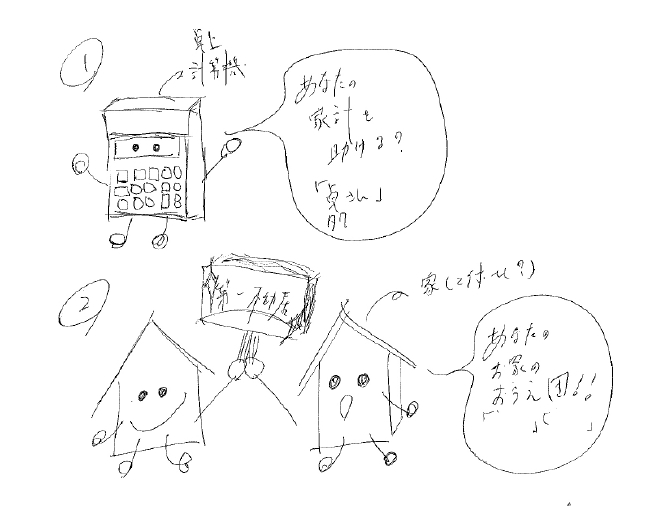 ①
卓上
計算機
あなたの
家計を
助ける?
「貞さん」
②
第一不動産
家(2件?)
あなたの
お家の
おうえん団!!
「 」「 」